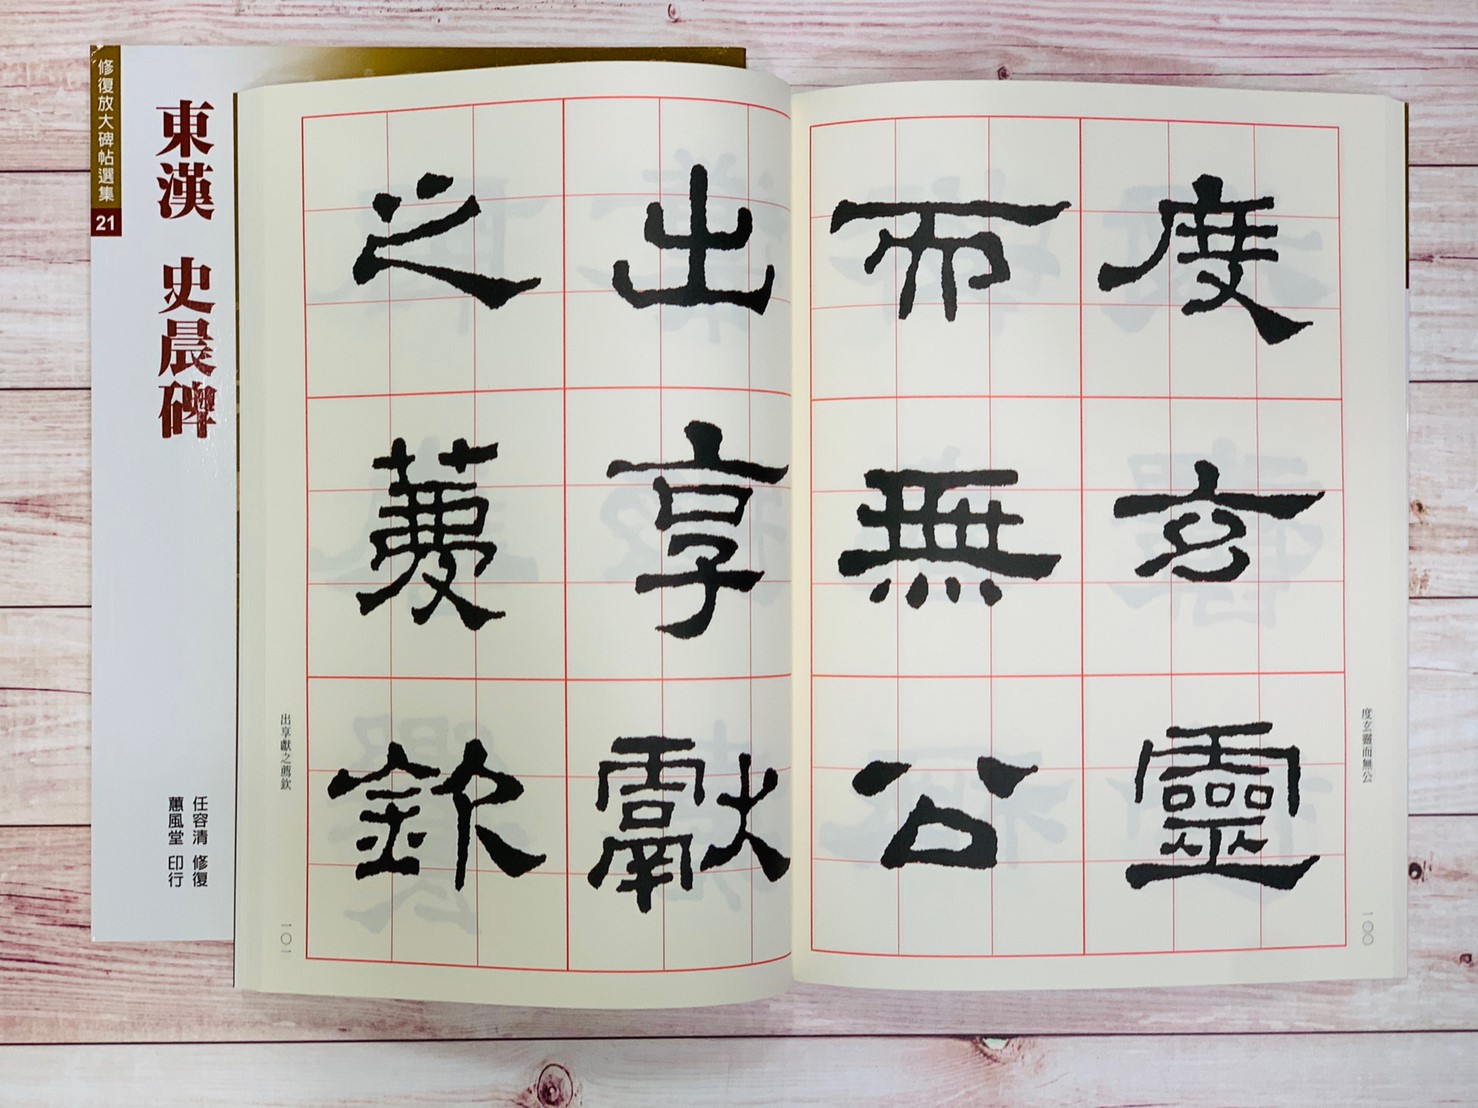 修復放大碑帖選集
21
東漢 史晨碑
任容清 修復
蕙風堂 印行
度玄靈
而無公
度玄靈而無公
一〇〇
出享獻
之薦欽
出享獻之薦欽
一〇一